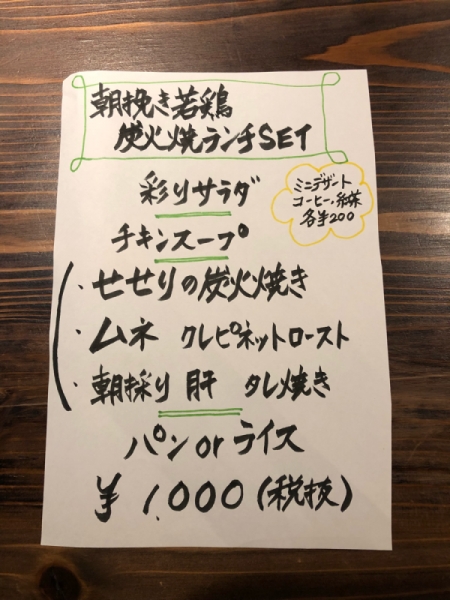 朝挽き若鶏
炭火焼ランチSET
彩りサラダ
ミニデザート
コーヒー、紅茶
各¥200
チキンスープ
・せせりの炭火焼き
・ムネ クレピネットロースト
・朝採り 肝 タレ焼き
パン or ライス
¥1,000(税抜)